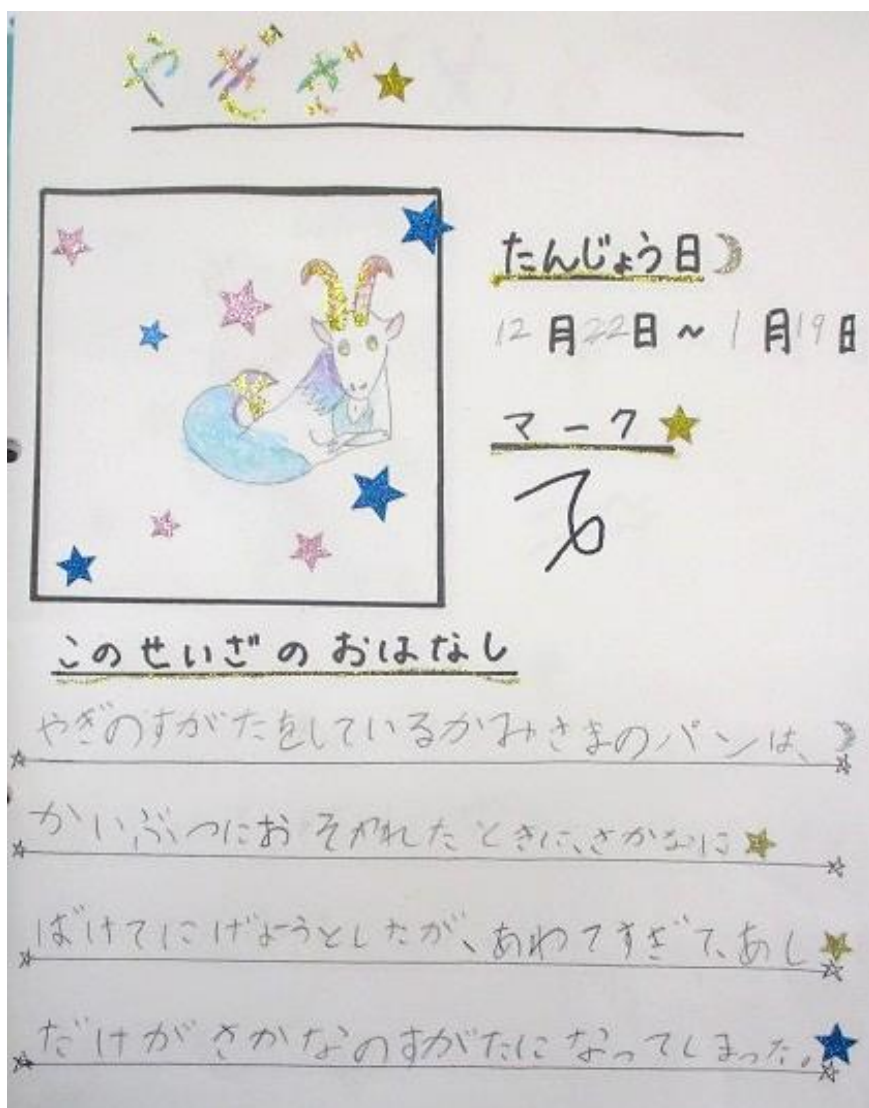 やぎざ
たんじょう日
12月22日～1月19日
マーク
このせいざのおはなし
やぎのすがたをしているかみさまのパンは、
かいぶつにおそわれたときに、さかなに
ばけてにげようとしたが、あわてすぎて、あし
だけがさかなのすがたになってしまった。